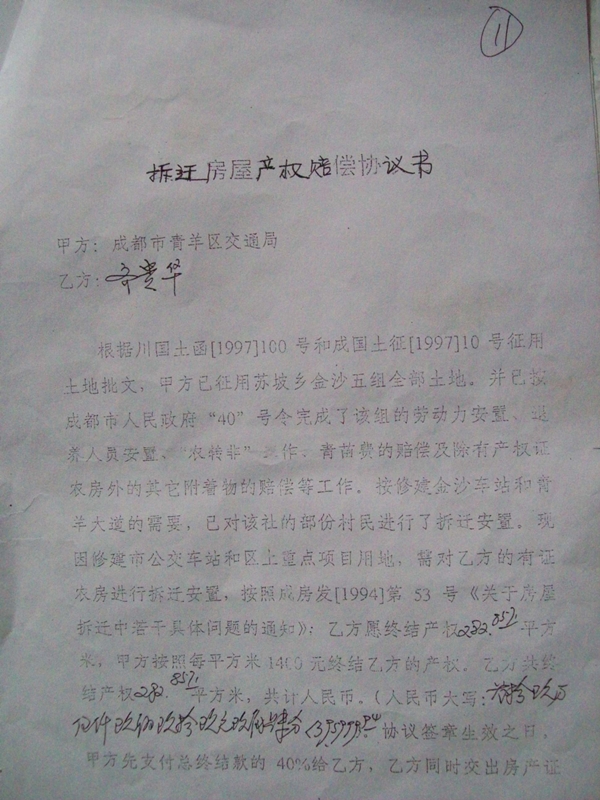 11
拆迁房屋产权赔偿协议书
甲方：成都市青羊区交通局
乙方：
根据川国土函[1997]100 号和成国土征[1997]10 号征用
土地批文，甲方已征用苏坡乡金沙五组全部土地。并已按
成都市人民政府“40”号令完成了该组的劳动力安置、退
养人员安置、“农转非”工作、青苗费的赔偿及除有产权证
农房外的其它附着物的赔偿等工作。按修建金沙车站和青
羊大道的需要，已对该社的部份村民进行了拆迁安置。现
因修建市公交车站和区上重点项目用地，需对乙方的有证
农房进行拆迁安置，按照成房发[1994]第 53 号《关于房屋
拆迁中若干具体问题的通知》：乙方愿终结产权282.8571平方
米，甲方按照每平方米1400元终结乙方的产权．乙方共终
结产权282.8571平方米，共计人民币。（人民币大写：
协议签章生效之日，
甲方先支付总终结款的 40%给乙方，乙方同时交出房产证